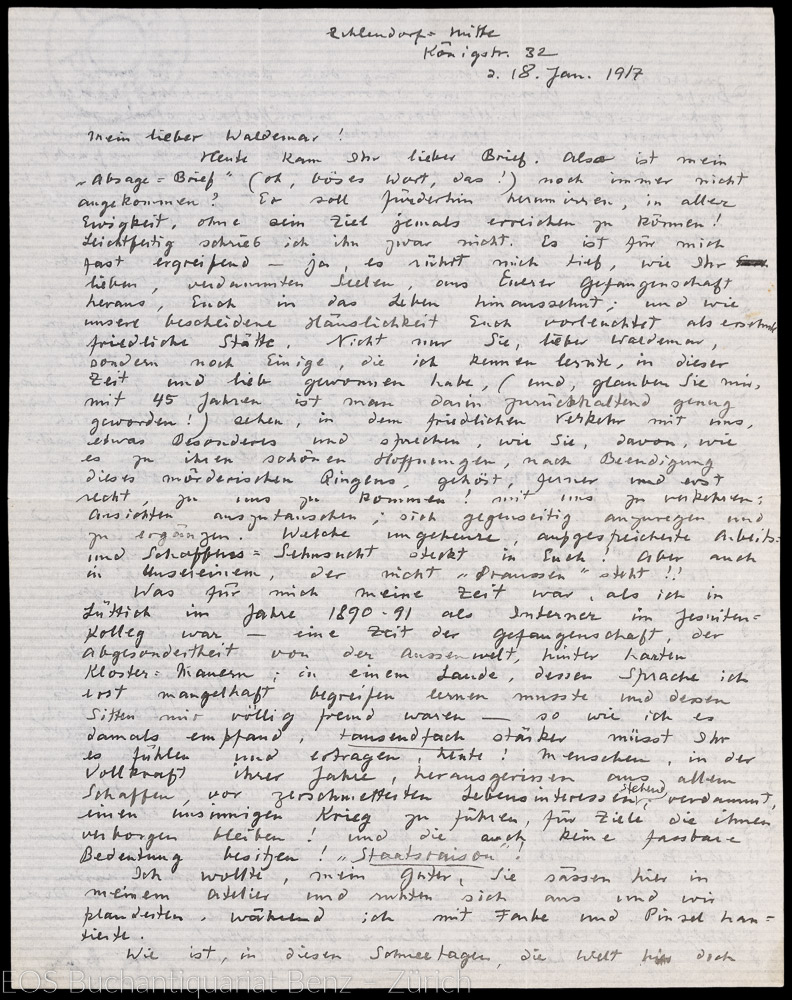 Zehlendorf-Mitte
Königstr. 32
d. 18. Jan. 1917
Mein lieber Waldemar!
Heute kam Ihr lieber Brief. Also ist mein
„Absage-Brief" (oh, böses Wort, das!) noch immer nicht
angekommen? Er soll fürderhin herumirren, in aller
Ewigkeit, ohne sein Ziel jemals erreichen zu können!
Leichtfertig schrieb ich ihn zwar nicht. Es ist für mich
fast ergreifend — ja, es rührt mich tief, wie Ihr
lieben, verdammten Seelen, aus Euerer Gefangenschaft
heraus, Euch in das Leben hinaussehnt; und wie
unsere bescheidene Häuslichkeit Euch vorleuchtet als ersehnte
friedliche Stätte. Nicht nur Sie, lieber Waldemar,
sondern noch Einige, die ich kennen lernte, in dieser
Zeit und lieb gewonnen habe, (und, glauben Sie mir,
mit 45 Jahren ist man darin zurückhaltend genug
geworden!) sehen, in dem friedlichen Verkehr mit uns,
etwas Besonderes und sprechen, wie Sie, davon, wie
es zu ihren schönen Hoffnungen, nach Beendigung
dieses mörderischen Ringens, gehört, ferner und erst
recht, zu uns zu kommen! mit uns zu verkehren:
Ansichten auszutauschen; sich gegenseitig anzuregen und
zu ergänzen. Welche ungeheure, aufgespeicherte Arbeits-
und Schaffens-Sehnsucht steckt in Euch! Aber auch
in Unsereinem, der nicht „Draussen" steht!!
Was für mich meine Zeit war, als ich in
Lüttich im Jahre 1890-91 als Interner im Jesuiten-
Kolleg war — eine Zeit der Gefangenschaft, der
Abgesondertheit von der Aussenwelt, hinter harten
Kloster-Mauern; in einem Lande, dessen Sprache ich
erst mangelhaft begreifen lernen musste und dessen
Sitten mir völlig fremd waren — so wie ich es
damals empfand, tausendfach stärker müsst Ihr
es fühlen und ertragen, heute! Menschen, in der
Vollkraft ihrer Jahre, herausgerissen aus allem
Schaffen, vor zerschmetterten Lebensinteressen stehend, verdammt,
einen unsinnigen Krieg zu führen, für Ziele die ihnen
verborgen bleiben! und die auch keine fassbare
Bedeutung besitzen! „Staatsraison"!
Ich wollte, mein Guter, Sie sässen hier in
meinem Atelier und ruhten sich aus und wir
plauderten, während ich mit Farbe und Pinsel han-
tierte.
Wie ist, in diesen Schneetagen, die Welt doch
EOS Buchantiquariat Benz – Zürich